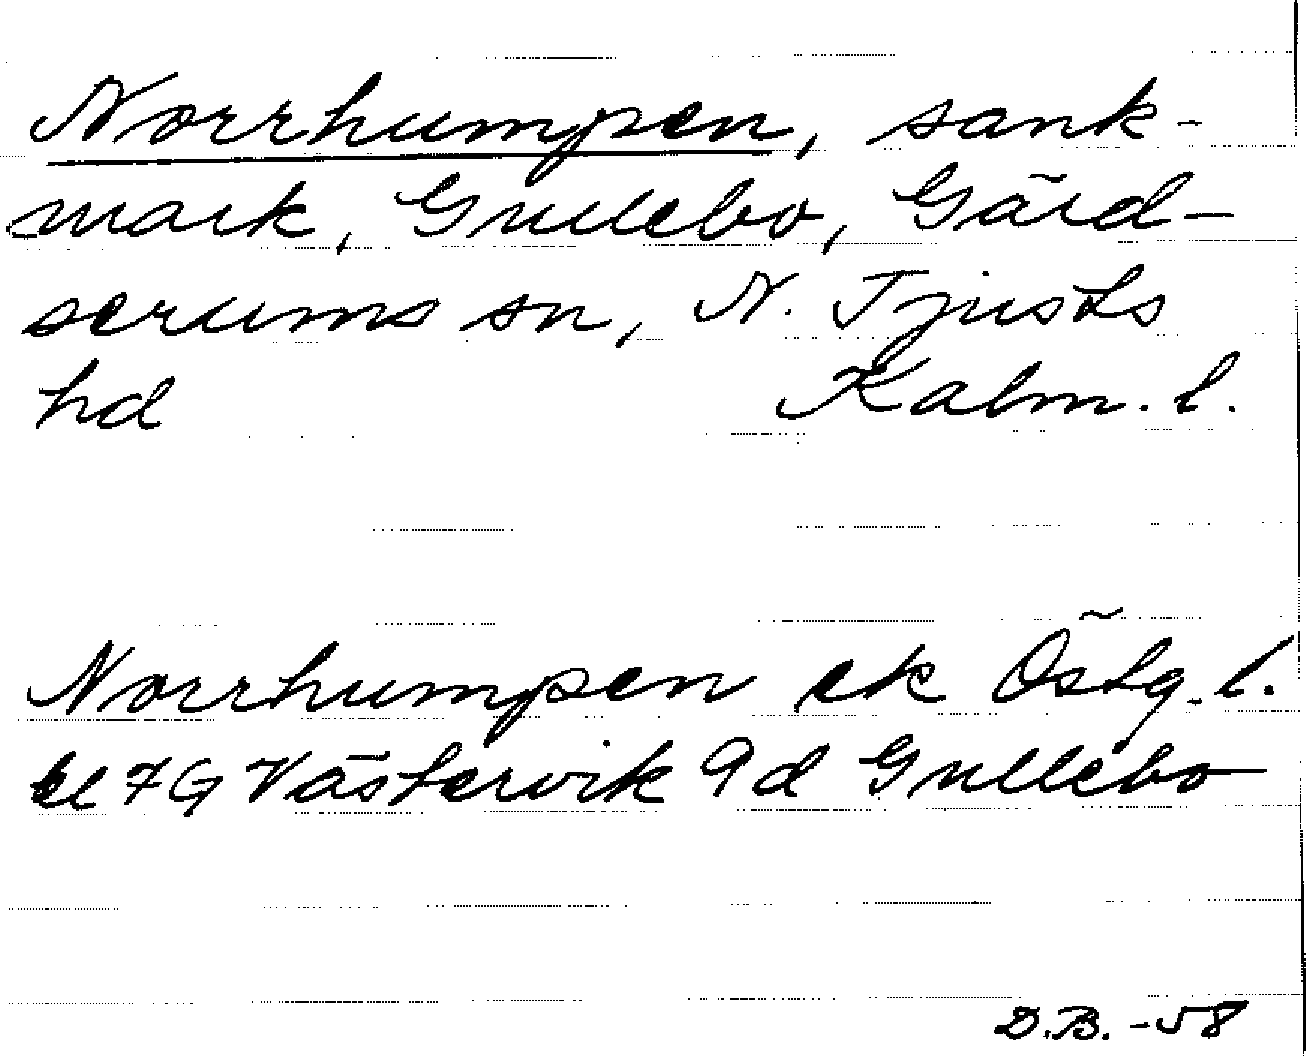 Norrhumpen, sank-
mark, Gullebo, Gärd-
serums sn, N. Tjusts
hd Kalm. l.
Norrhumpen ek Östg. l.
bl 7G Västervik 9d Gullebo
D.B. -58